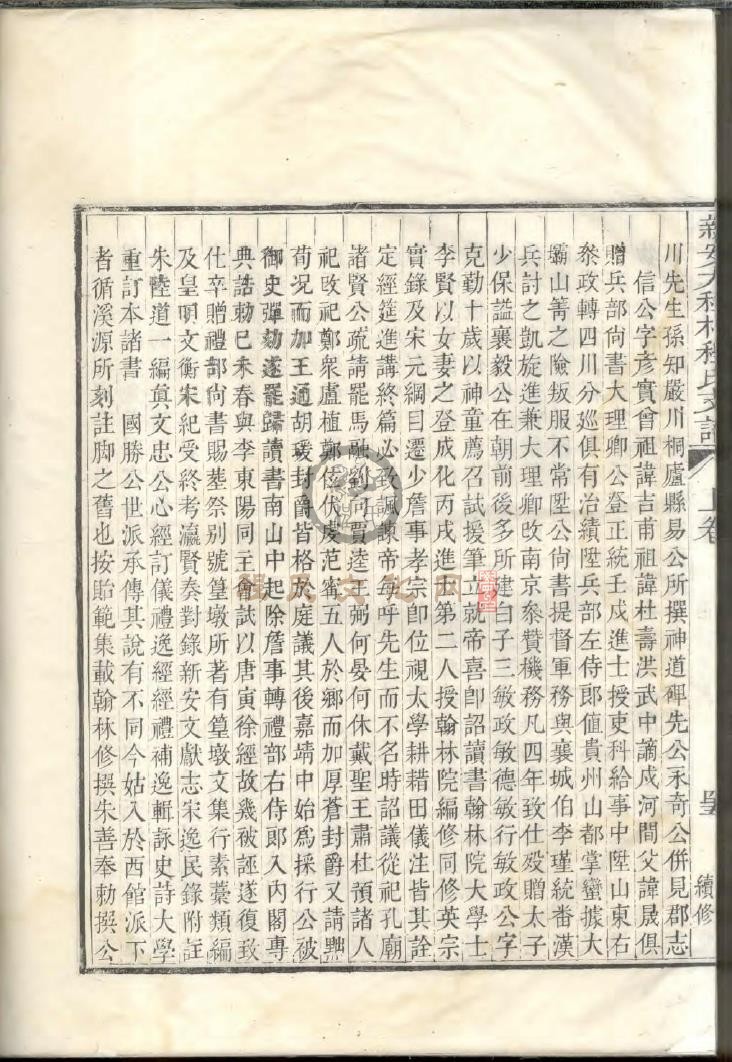 新安大程村程氏支譜 上卷 續修
川先生孫知嚴川桐廬縣易公所撰神道碑先公永奇公併見郡志
信公字彥實曾祖諱吉甫祖諱杜壽洪武中謫戍河間父諱晟俱
贈兵部尚書大理卿公登正統壬戌進士授吏科給事中陞山東右
叅政轉四川分廵俱有治績陞兵部左侍郎値貴州山都掌蠻據大
壩山箐之險叛服不常陞公尚書提督軍務與襄城伯李瑾統番漢
兵討之凱旋進兼大理卿改南京叅贊機務凡四年致仕歿贈太子
少保謚襄毅公在朝前後多所建白子三敏政敏德敏行敏政公字
克勤十歲以神童薦召試援筆立就帝喜卽詔讀書翰林院大學士
李賢以女妻之登成化丙戌進士第二人授翰林院編修同修英宗
實錄及宋元綱目遷少詹事孝宗卽位視太學耕耤田儀注皆其詮
定經筵進講終篇必致諷諫帝每呼先生而不名時詔議從祀孔廟
諸賢公疏請罷馬融劉向賈逵王弼何晏何休戴聖王肅杜預諸人
祀改祀鄭衆盧植鄭玄伏虔范甯五人於鄉而加厚蒼封爵又請黜
荀况而加王通胡瑗封爵皆格於庭議其後嘉靖中始爲採行公被
御史彈劾遂罷歸讀書南山中起除詹事轉禮部右侍郎入內閣專
典誥勅己未春與李東陽同主會試以唐寅徐經故幾被誣遂復致
仕卒贈禮部尚書賜塟祭别號篁墩所著有篁墩文集行素藁類編
及皇明文衡宋紀受終考瀛賢奏對錄新安文獻志宋逸民錄附註
朱陸道一編眞文忠公心經訂儀禮逸經經禮補逸輯詠史詩大學
重訂本諸書 國勝公世派承傳其說有不同今姑入於西館派下
者循溪源所刻註脚之舊也按貽範集載翰林修撰朱善奉勅撰公